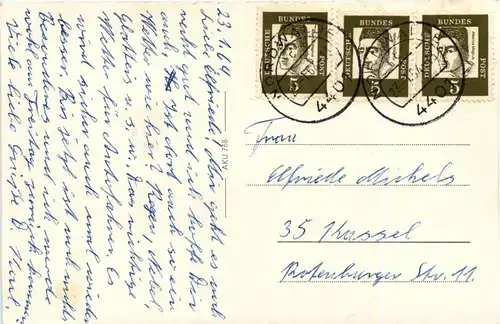 23.1.64
Liebe Alfriede, Mir geht es noch
recht gut und ich hoffe Dir
auch. Ist dort auch so ein
Wetter wie hier? Regen, Nebel,
Glatteis u. s. w. Das richtige
Wetter für Autofahrer. Es
wird wieder auch mal wieder
besser. Bis jetzt ist noch nichts
Besonderes und ich werde
wohl am Freitag zurück kommen
Viele liebe Grüße
AKU 788
DEUTSCHE BUNDES POST
5
DEUTSCHE BUNDES POST
5
DEUTSCHE BUNDES POST
5
440
4401
Frau
Alfriede Michels
35 Kassel
Rotenburger Str. 11.